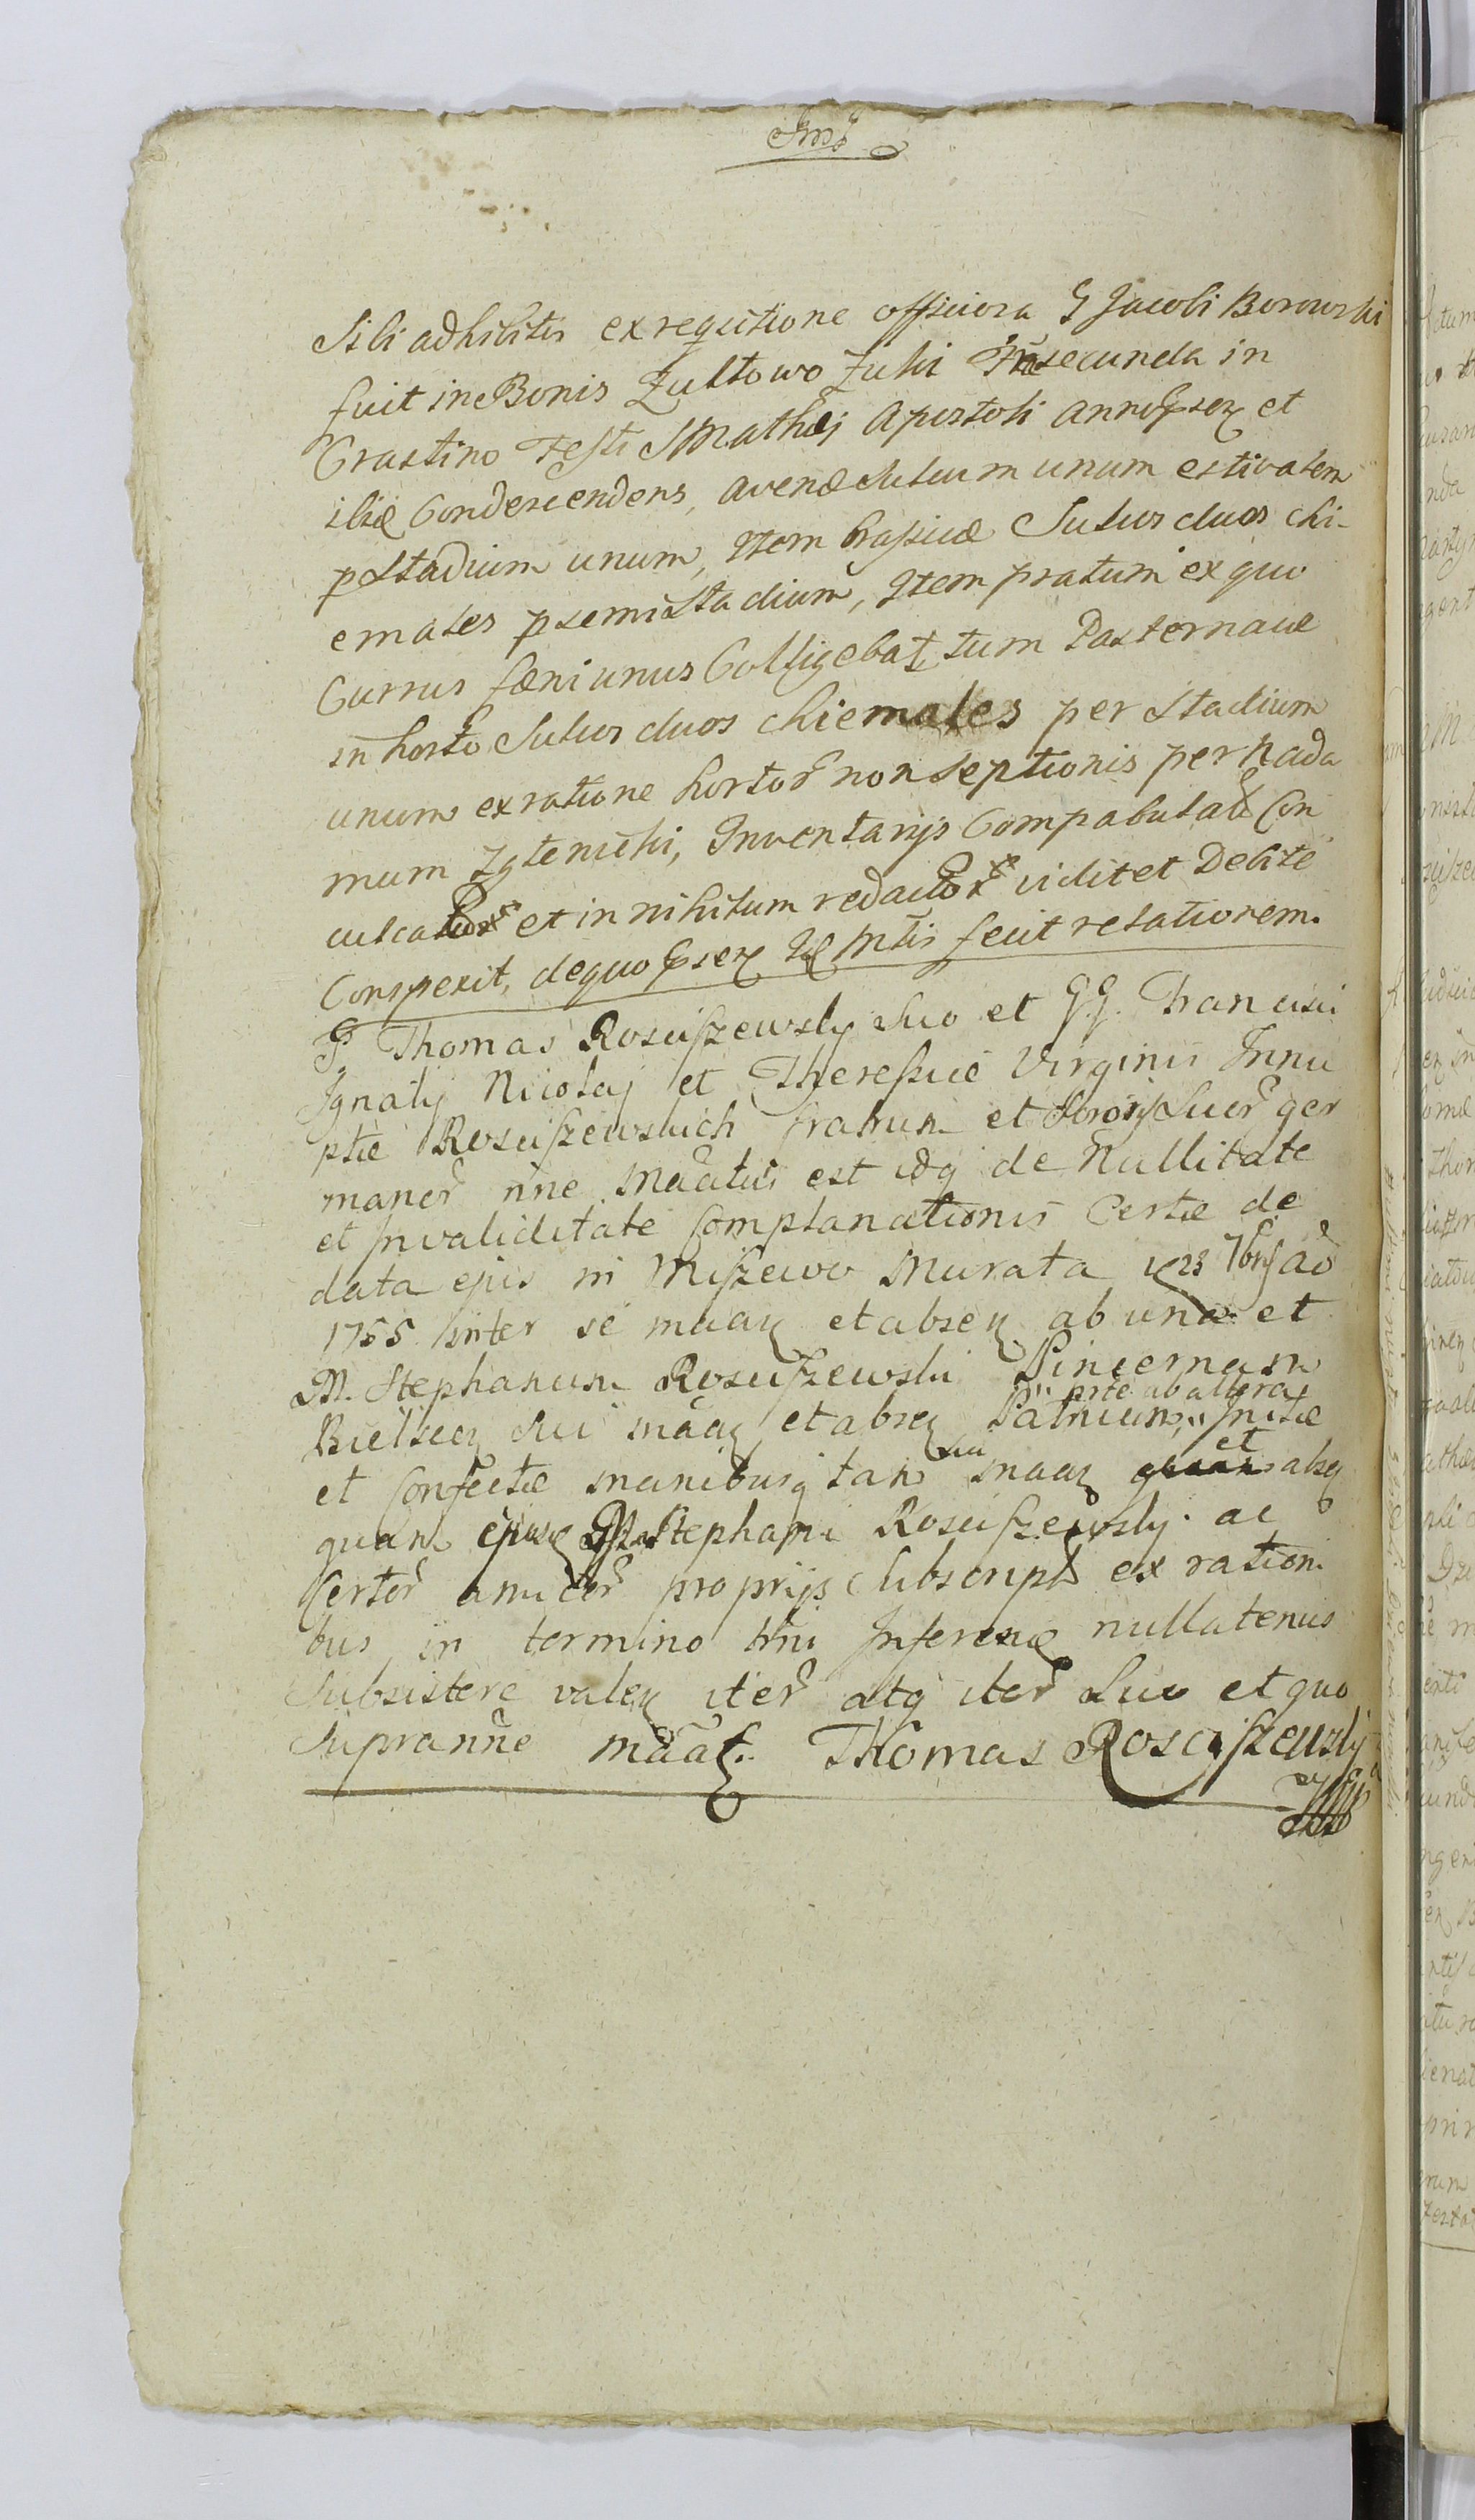 Sibi adhibitis ex requitione officiora G Jacobi Borowski
fuit in Bonis Zultowo Zuki secunda in
Crastino Festi S Mathæj Apostoli anni et
ibiq Condescendens, avenæ sulcum unum estivalem
p stadium unum, Item brassicæ Sulcos duos chi-
emales p semistadium, Item pratum ex quo
Currus fæni unus Colligebat, tum Pasternacæ
in horto Sulcos duos chiemales per stadium
unum ex ratione hortor non septionis per nada
mum Zglenicki, Inventarijs Compabulat Con
culcator et in nihilum redactor vidit et Debite
Conspexit, de quo Mtis fecit relationem.
G Thomas Rosciszewsky Suo et G.G. Francisci
Ignatij Nicolaj et Theressiæ Virginis Innu
ptæ Rosciszewskich fratrum et Sororis Suor ger
manor nne Maatus est de Nullitate
et Invaliditate Complanationis Certæ de
data ejus in Miszewo Murata 23 7bris ao
1755 inter se maaz et absez ab una et
M. Stephanum Rosciszewski Pincernam
prte ab altera
Bielscez Sui maaz et absez Patruum, Initæ
sui et
et Confectæ manibusq tam maaz absz
quam Stephani Rosciszewsky. ac
Certor amicor proprijs Subscript ex rationi
bus in termino Inferenq nullatenus
Subsistere valez iter atq iter Suo et quo
Supra nne maat. Thomas Rosciszewsky